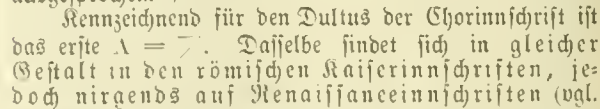 Kennzeichnend für den Dultus der Chorinnschrift ist
das erste Λ = 7. Dasselbe findet sich in gleicher
Gestalt in den römischen Kaiserinnschriften, je-
doch nirgends auf Renaissanceinnschriften (vgl.